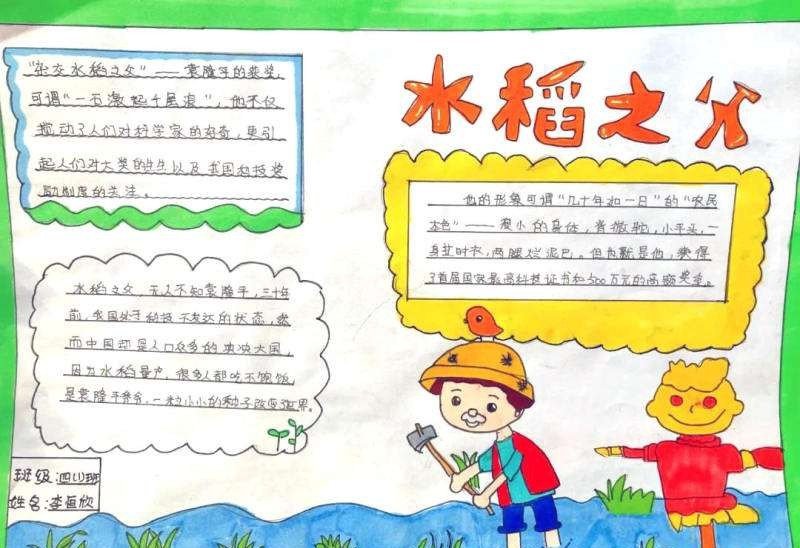 水稻之父
"杂交水稻之父"——袁隆平的获奖,
可谓"一石激起千层浪",他不仅
搅动了人们对科学家的好奇,更引
起人们对大奖的诞生以及我国科技奖
励制度的关注。
他的形象可谓"几十年如一日"的"农民
本色"——瘦小的身体,背微驼,小平头,一
身廿时衣,两腿烂泥巴。但就是他,获得
了首届国家最高科技证书和500万元的高额奖金。
水稻之父,无人不知袁隆平,三十年
前,我国处于科技不发达的状态,然
而中国却是人口众多的泱泱大国,
因为水稻量产,很多人都吃不饱饭,
是袁隆平爷爷,一粒小小的种子改变了世界。
班级:四(1)班
姓名:李恒欣